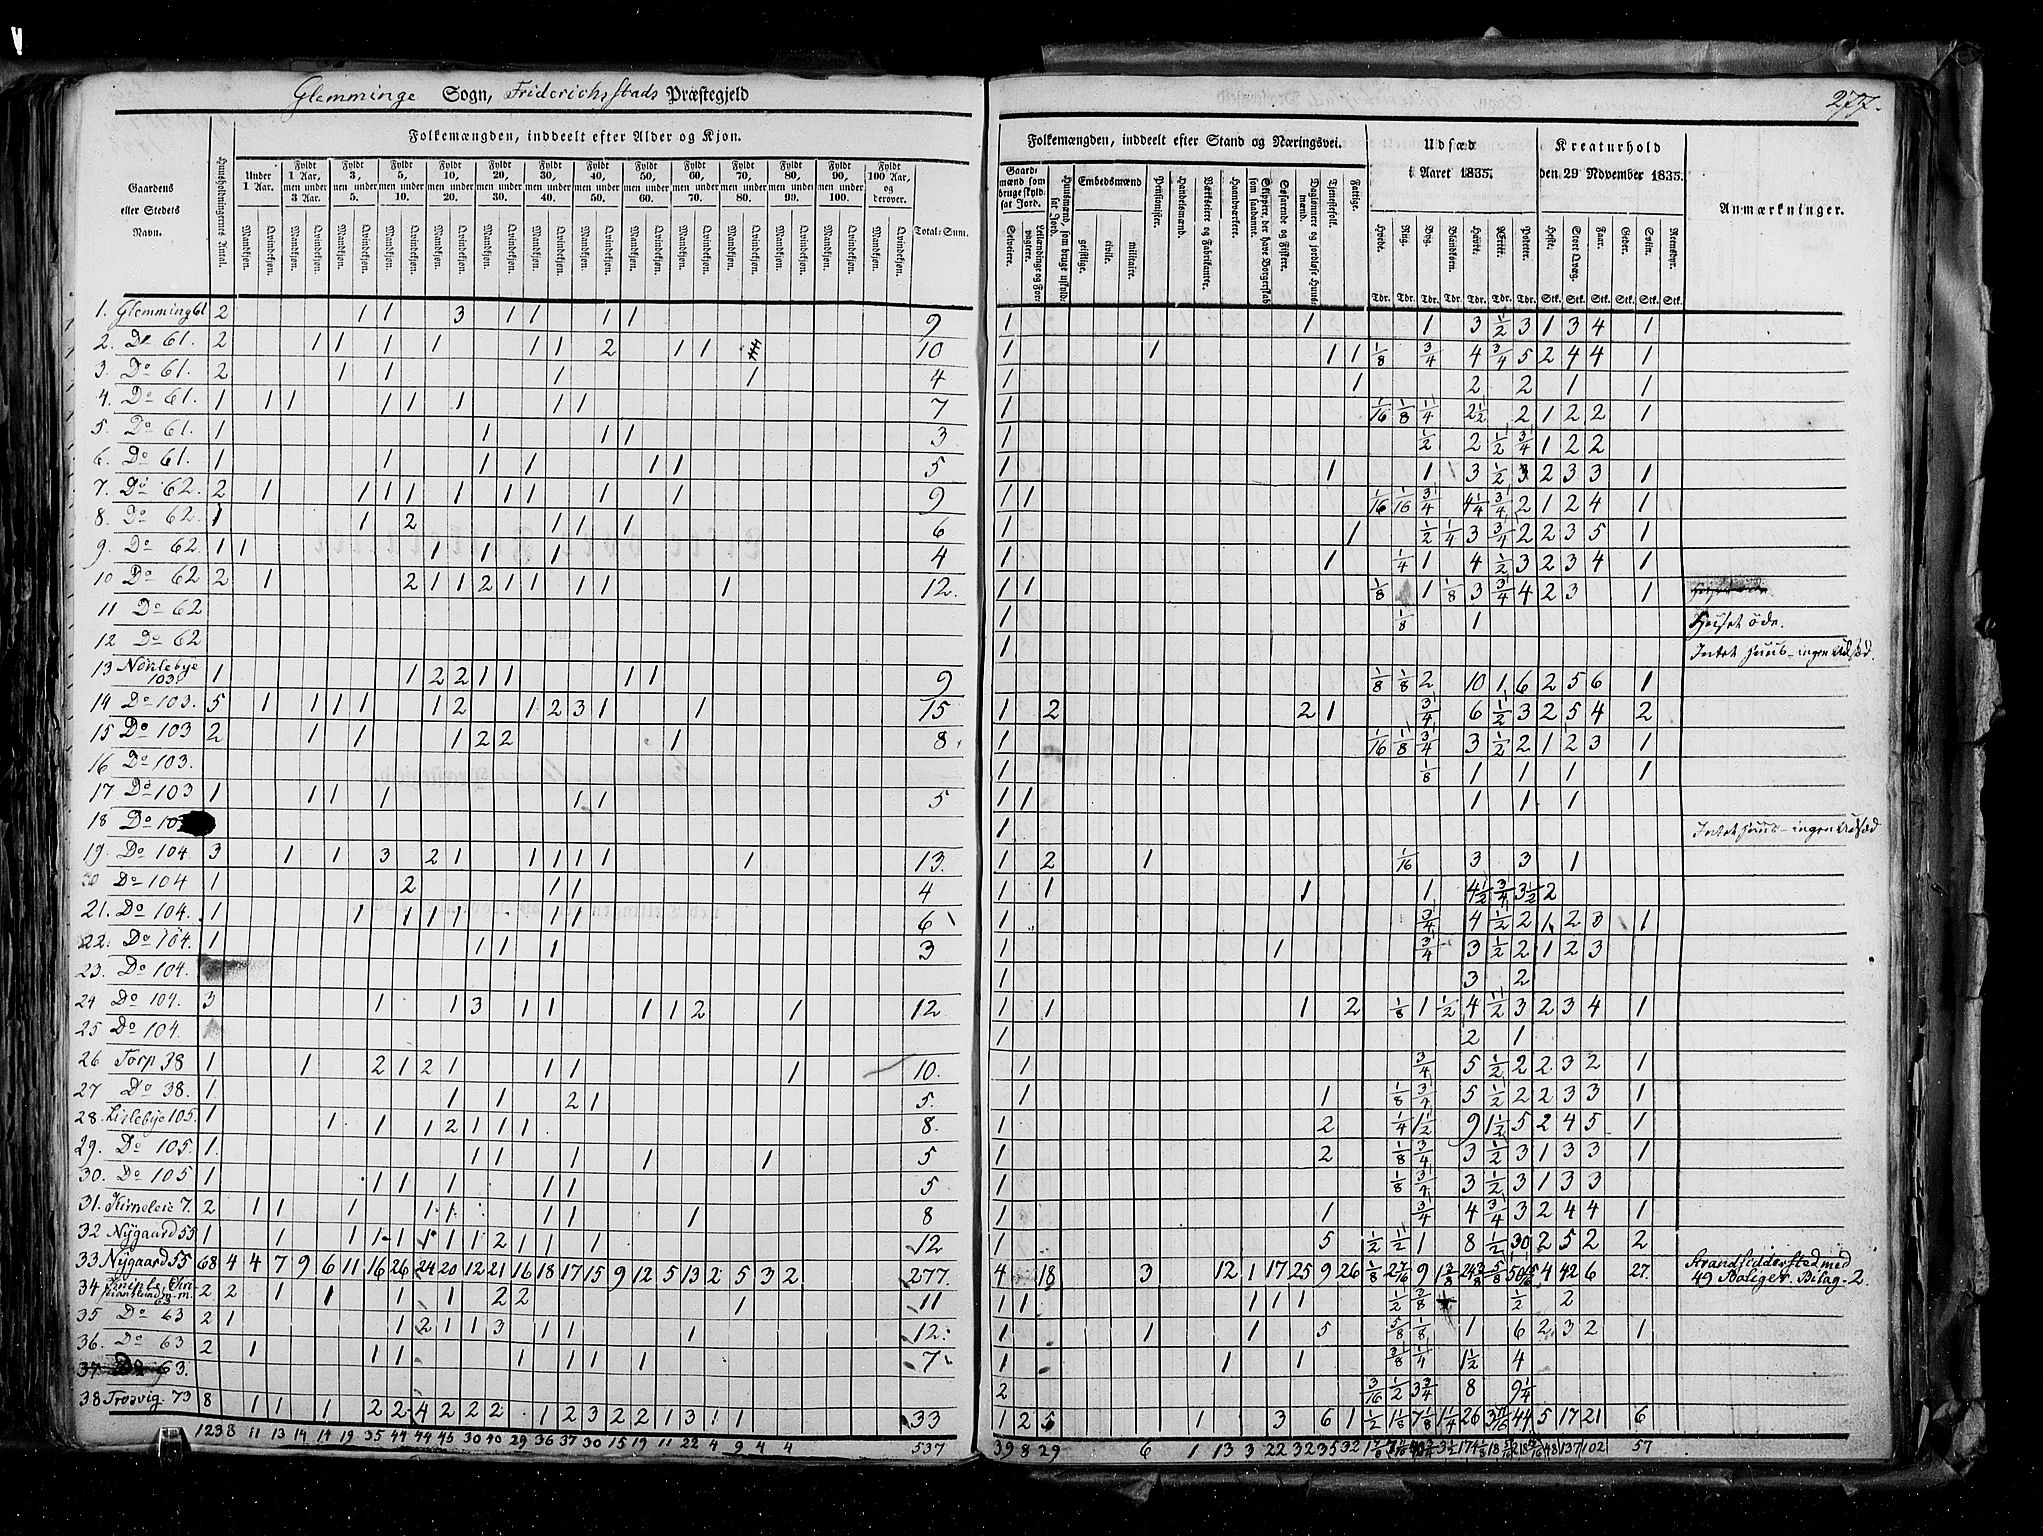 Glemminge Sogn, Friderichsstads Præstegjeld
277.
Gaardens eller Stedets Navn.
Huusholdningernes Antal.
Folkemængden, inddeelt efter Alder og Kjøn.
Under 1 Aar.
Fyldt 1 Aar, men under 3 Aar.
Fyldt 3, men under 5.
Fyldt 5, men under 10.
Fyldt 10, men under 20.
Fyldt 20, men under 30.
Fyldt 30, men under 40.
Fyldt 40, men under 50.
Fyldt 50, men under 60.
Fyldt 60, men under 70.
Fyldt 70, men under 80.
Fyldt 80, men under 90.
Fyldt 90, men under 100.
Fyldt 100 Aar, og derover.
Mandkjøn. Qvindekjøn.
Total-Sum.
Folkemængden, inddeelt efter Stand og Næringsvei.
Gaardmænd som bruge skyldsat Jord.
Selveiere.
Leilændinge og Forpagtere.
Huusmænd som bruge uskyldsat Jord.
Embedsmænd
geistlige.
civile.
militaire.
Pensionister.
Handelsmænd.
Værkseiere og Fabrikanter.
Haandværkere.
Skippere, der have Borgerskab som saadanne.
Søfarende og Fiskere.
Daglønnere og jordløse Huusmænd.
Tjenestefolk.
Fattige.
Udsæd i Aaret 1835.
Hvede.
Rug.
Byg.
Blandkorn.
Havre.
Erter.
Poteter.
Tdr. Tdr. Tdr. Tdr. Tdr. Tdr. Tdr.
Kreaturhold den 29 November 1835.
Heste.
Stort Qvæg.
Faar.
Geder.
Sviin.
Reensdyr.
Stk. Stk. Stk. Stk. Stk. Stk.
Anmærkninger.
1. Glemming 61 2 1 1 3 1 1 1 1 9 1 1 1 3 1/2 3 1 3 4 1
2. Do 61. 2 1 1 1 1 1 1 2 1 1 10 1 1 1 1 1/8 3/4 4 3/4 5 2 4 4 1
3. Do 61. 2 1 1 1 1 4 1 1 2 2 1 1
4. Do 61. 1 1 1 1 1 1 1 1 7 1 1/16 1/8 1/4 2 1/2 2 1 2 2 1
5. Do 61. 1 1 1 1 3 1 1/2 2 1/2 3/4 1 2 2
6. Do 61. 1 1 1 1 1 1 5 1 1 1 3 1/2 3 2 3 3 1
7. Do 62. 2 1 1 1 1 1 1 1 1 1 9 1 1 1/16 1/16 3/4 4 1/4 3/4 2 1 2 4 1
8. Do 62. 1 1 2 1 1 1 6 1 1 1/2 1/4 3 3/4 2 2 3 5 1
9. Do 62. 1 1 1 1 1 4 1 1 1/4 1 4 1/2 3 2 3 4 1
10 Do 62 2 1 2 1 1 2 1 1 1 1 1 12. 1 1 1/8 1 1/8 3 3/4 4 2 3 1
11 Do 62 1 1/8 1 Huset øde.
12 Do 62 1 Intet Huus - ingen Udsæd.
13 Nørlebye 103. 1 1 2 2 1 1 1 1 9 1/8 1/8 2 10 1 6 2 5 6 1
14 Do 103. 5 1 1 1 1 1 2 1 2 3 1 1 15 1 2 2 1 3/4 6 1/2 3 2 5 4 2
15 Do 103 2 1 1 1 2 2 1 8. 1 1/16 1/8 3/4 3 1/2 2 1 2 3 1
16 Do 103. 1 1/8 1 1 1 1
17 Do 103 1 1 1 1 1 1 5 1 1 1 1 1
18 Do 1 Intet Huus - ingen Udsæd
19. Do 104 3 1 1 3 2 1 1 1 1 1 1 13. 1 2 1 1/16 3 3 1
20 Do 104 1 2 1 1 4 1 1 1 1 4 1/2 3/4 3 1/2 2
21. Do 104. 1 1 1 1 1 1 1 6 1 3/4 4 1/2 2 1 2 3 1
22. Do 104. 1 1 1 1 3 1 1 3/4 3 1/2 2 1 2 3
23. Do 104. 1 3 2
24 Do 104. 3 1 1 3 1 1 1 1 2 1 12 1 1 1 2 1/8 1 1/2 4 1/2 3 2 3 4 1
25 Do 104 1 2 1
26 Torp 38 1 1 2 1 2 1 1 1 1 10. 1 3/4 5 1/2 2 2 3 2 1
27 Do 38. 1 1 1 2 1 5. 1 1 1/8 3/4 5 1/2 2 2 3 3 1
28. Lislebye 105. 1 1 1 1 2 1 1 1 8. 1 2 1/4 1 1/2 9 1 1/2 5 2 4 5 1
29. Do 105. 1. 1 1 1 1 1 5 1 2 1/8 3/4 3 1/2 3 1 3 3 1
30. Do 105 1 1 1 1 1 1 5 1 1/8 3/4 3 1/2 3 1 3 3
31. 7. 2 1 1 1 1 1 1 1 1 8 1 1 3/4 4 3/4 3 2 4 4 1
32 Nygaard 55 1 1 1 1 1 1 1 1 2 1 1 1 12 1 5 1/2 1/2 1 8 1/2 30 2 5 2 2
33 Nygaard 55 68 4 4 7 9 6 11 16 26 24 20 12 21 16 18 17 15 9 12 5 13 2 5 3 2 277. 4 18 3 12 1 17 25 9 26 4 42 6 27. Strandsidderstedmed 49 Boliger. Bilag 2.
34 m.m. 63 2 2 1 1 1 1 2 2 1 11 1 1 1 1 1 1/2 1/2 2
35 Do 63 2 1 1 2 1 1 3 1 1 1 12. 1 1 1 5 5/8 1/8 1 6 2 3 2 1
36. Do 63 2 1 1 1 1 1 1 1 7. 1 1 1 3/8 1/4 1 1/2 4
37. 63. 2 3/16 1/2 3 3/4 8 9 1/4
38 Trosvig 73 8 1 1 1 2 2 4 2 2 2 1 2 3 2 2 1 3 1 1 33 1 2 5 1 3 6 1 1/2 26 44 5 17 21 6
123 8 11 13 14 14 19 35 44 44 45 30 40 29 36 37 30 15 19 11 22 4 9 4 4 537 39 8 29 6 1 13 3 22 32 35 32 48 137 102 57